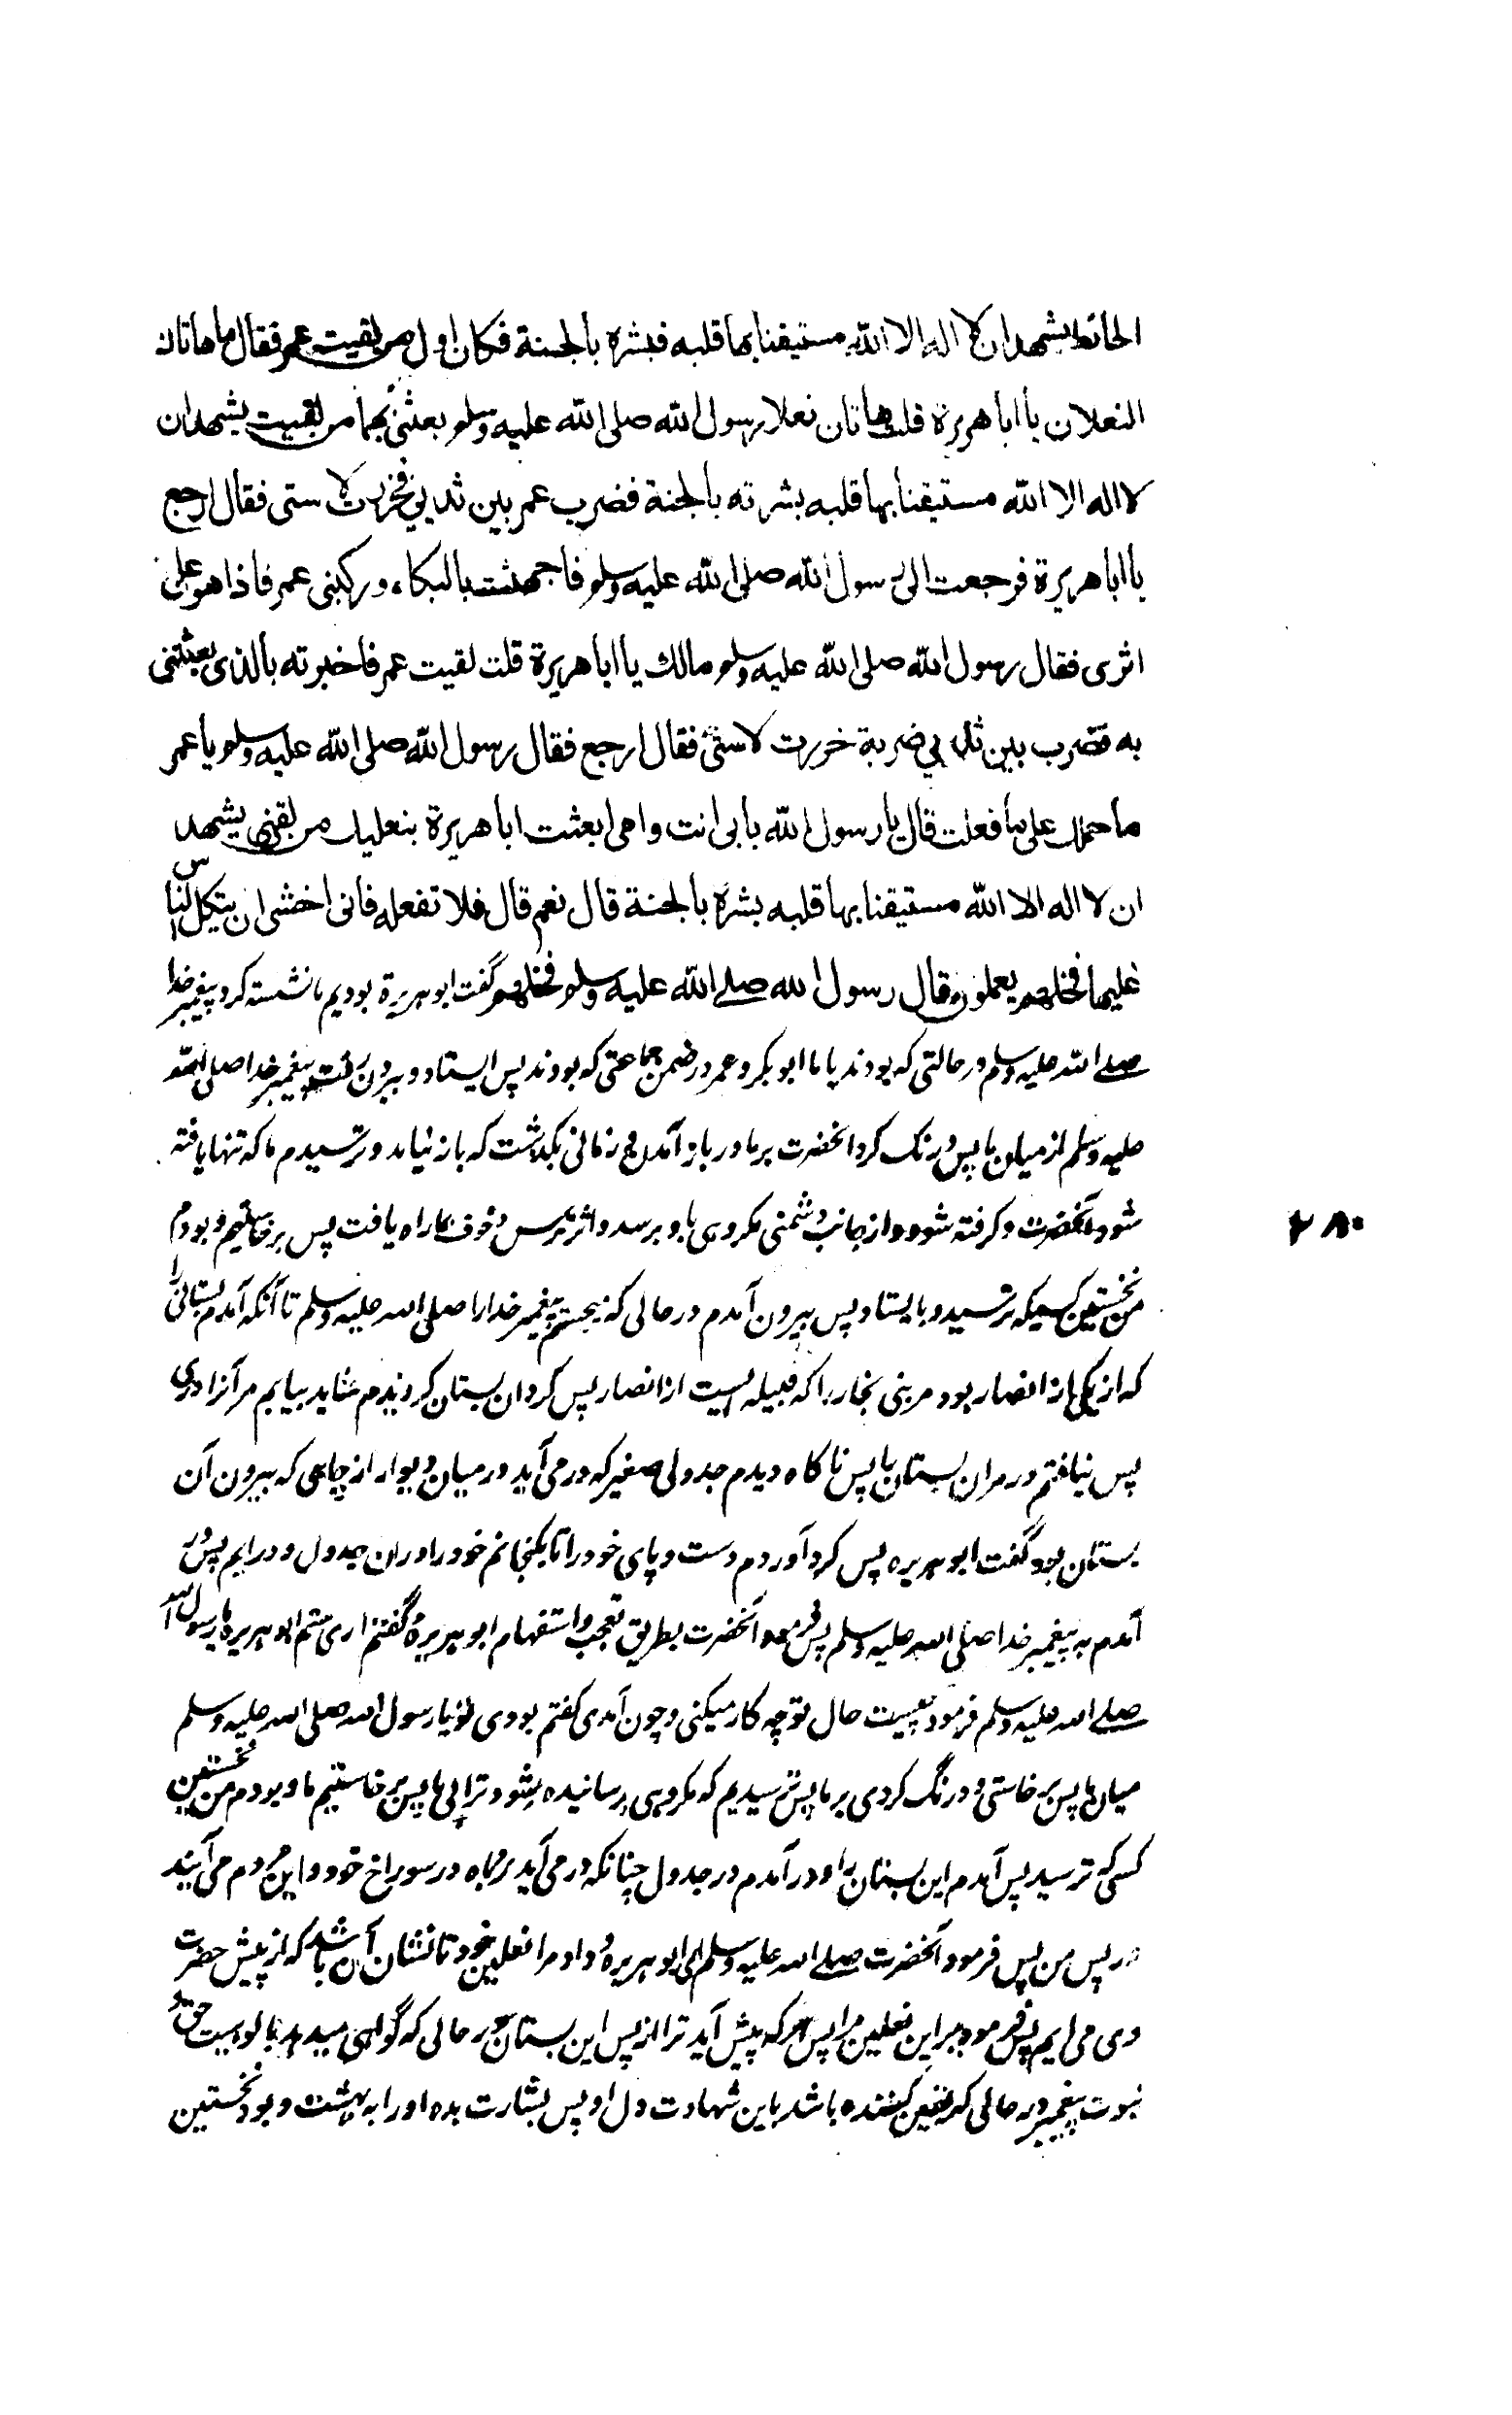 الحائط یشهد ان لا اله الا الله مستیقنا بها قلبه فبشره بالجنة فکان اول من لقیت عمر فقال ما هاتان
النعلان یا ابا هریرة فقلت هاتان نعلا رسول الله صلی الله علیه وسلم بعثنی بهما من لقیت یشهد ان
لا اله الا الله مستیقنا بها قلبه بشرته بالجنة فضرب عمر بین ثدیی فخررت لاستی فقال ارجع
یا ابا هریرة فرجعت الی رسول الله صلی الله علیه وسلم فاجهشت بالبکاء ورکبنی عمر فاذا هو علی
اثری فقال رسول الله صلی الله علیه وسلم مالک یا ابا هریرة قلت لقیت عمر فاخبرته بالذی بعثتنی
به فضرب بین ثدیی ضربة خررت لاستی فقال ارجع فقال رسول الله صلی الله علیه وسلم یا عمر
ما حملک علی ما فعلت قال یا رسول الله بابی انت وامی ابعثت ابا هریرة بنعلیک من لقی یشهد
ان لا اله الا الله مستیقنا بها قلبه بشره بالجنة قال نعم قال فلا تفعل فانی اخشی ان یتکل الناس
علیها فخلهم یعملون فقال رسول الله صلی الله علیه وسلم فخلهم گفت ابو هریرة بودیم ما نشسته گرد پیغمبر خدا
صلے الله علیه وسلم در حالتی که بودند با ما ابو بکر و عمر در ضمن جماعتی که بودند پس ایستاد و بیرون رفت پیغمبر خدا صلی الله
علیه وسلم از میان ما پس درنگ کرد انحضرت بر ما در باز آمدن و زمانی بگذشت که باز نیامد و ترسیدیم ما که تنها یافته
شود آنحضرت و گرفته شود و از جانب دشمنی مکروهی باو برسد و اثر ترس و خوف ما را راه یافت پس برخاستیم و بودم
من نخستین کسیکه ترسید و بایستاد پس بیرون آمدم در حالی که میجستم پیغمبر خدا را صلی الله علیه وسلم تا آنکه آمدم بستانی را
که از یکی از انصار بود مر بنی نجار را که قبیله ایست از انصار پس گرد ان بستان گردیدم شاید بیابم مر آنرا دری
پس نیافتم در مران بستان را پس ناگاه دیدم جدولی صغیر که در می آید در میان دیوار از چاهی که بیرون آن
بستان بود گفت ابو هریره پس گرد آوردم دست و پای خود را تا بگنجانم خود را در ان جدول و در ایم پس در
آمدم به پیغمبر خدا صلی الله علیه وسلم پس فرمود آنحضرت بطریق تعجب و استفهام ابو هریرهٔ گفتم اری منم ابو هریره یا رسول الله
صلے الله علیه وسلم فرمود چیست حال تو چه کار میکنی و چون آمدی گفتم بودی تو یا رسول الله صلی الله علیه وسلم
میان ما پس برخاستی و درنگ کردی بر ما پس ترسیدیم که مکروهی رسانیده شود ترا بی ما پس برخاستیم ما و بودم من نخستین
کسی که ترسید پس آمدم این بستان را و در آمدم در جدول چنانکه در می آید روباه در سوراخ خود و این مردم می آیند
در پس من پس فرمود آنحضرت صلے الله علیه وسلم ای ابو هریره و داد مرا نعلین خود تا نشان آن باشد که از پیش حضرت
وی می ایم پس فرمود ببر این نعلین مرا پس هر که پیش آید ترا از پس این بستان در حالی که گواهی میدهد بالوهیت حق و
نبوت پیغمبر در حالی که یقین کننده باشد باین شهادت دل او پس بشارت بده او را به بهشت و بود نخستین
۲۸۰